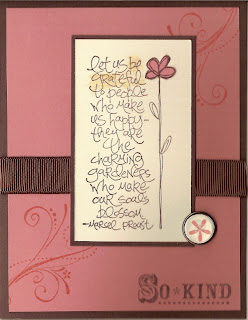 let us be
grateful
to people
who make
us happy-
they are
the
charming
gardeners
who make
our souls
blossom
-Marcel Proust
So*Kind